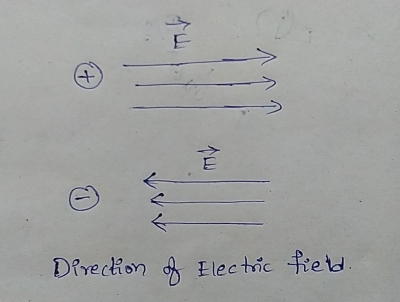 E
+
E
-
Direction of Electric field.